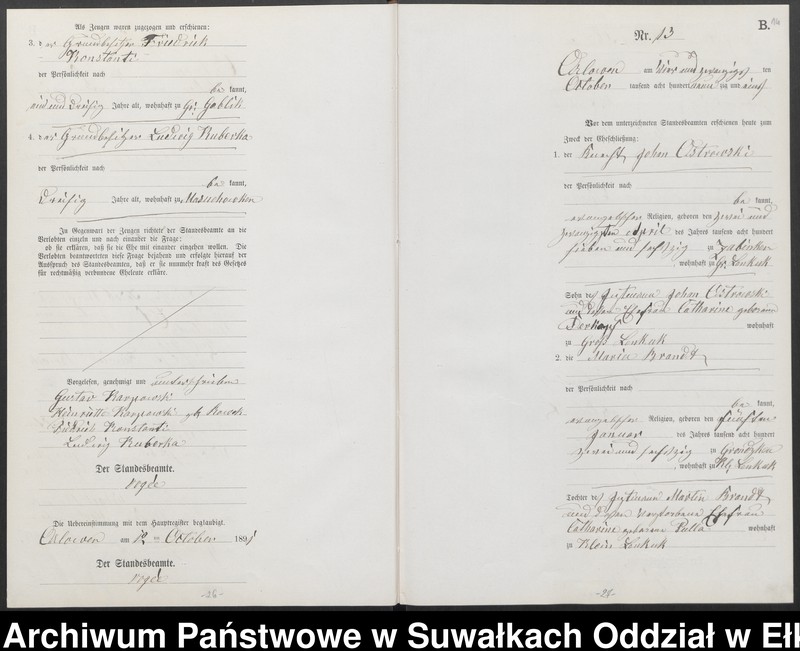 Als Zeugen waren zugezogen und erschienen:
3. der Grundbesitzer Friedrich
Konstanti
der Persönlichkeit nach
be kannt,
ein und dreißig Jahre alt, wohnhaft zu Gr. Gablik
4. der Grundbesitzer Ludwig Kuberka
der Persönlichkeit nach
be kannt,
dreißig Jahre alt, wohnhaft zu Masuchowken
In Gegenwart der Zeugen richtete der Standesbeamte an die
Verlobten einzeln und nach einander die Frage:
ob sie erklären, daß sie die Ehe mit einander eingehen wollen. Die
Verlobten beantworteten diese Frage bejahend und erfolgte hierauf der
Ausspruch des Standesbeamten, daß er sie nunmehr kraft des Gesetzes
für rechtmäßig verbundene Eheleute erkläre.
Vorgelesen, genehmigt und unterschrieben
Gustav Karpowski
Henriette Karpowski geb.
Friedrich Konstanti
Ludwig Kuberka
Der Standesbeamte.
Die Uebereinstimmung mit dem Hauptregister beglaubigt.
Czlowen am ten October 1891
Der Standesbeamte.
-26-
B.
Nr. 13
Czlowen am vier und zwanzigsten
October tausend acht hundert neun zig und eins
Vor dem unterzeichneten Standesbeamten erschienen heute zum
Zweck der Eheschließung:
1. der Knecht Johan Ostrowski
der Persönlichkeit nach
be kannt,
evangelischer Religion, geboren den zwei und
zwanzigsten April des Jahres tausend acht hundert
sieben und sechszig zu Zabinken
, wohnhaft zu Gr. Lenkuk
Sohn des Instmann Johan Ostrowski
und dessen Ehefrau Catharine geborene
wohnhaft
zu Groß Lenkuk
2. die Marie Brandt
der Persönlichkeit nach
be kannt,
evangelischer Religion, geboren den fünften
Januar des Jahres tausend acht hundert
zwei und sechszig zu Grondzken
, wohnhaft zu Kl. Lenkuk
Tochter des Instmann Martin Brandt
und dessen verstorbene Ehefrau
Catharine geborene Pulla wohnhaft
zu Klein Lenkuk
-27-
Archiwum Państwowe w Suwałkach Oddział w Ełk